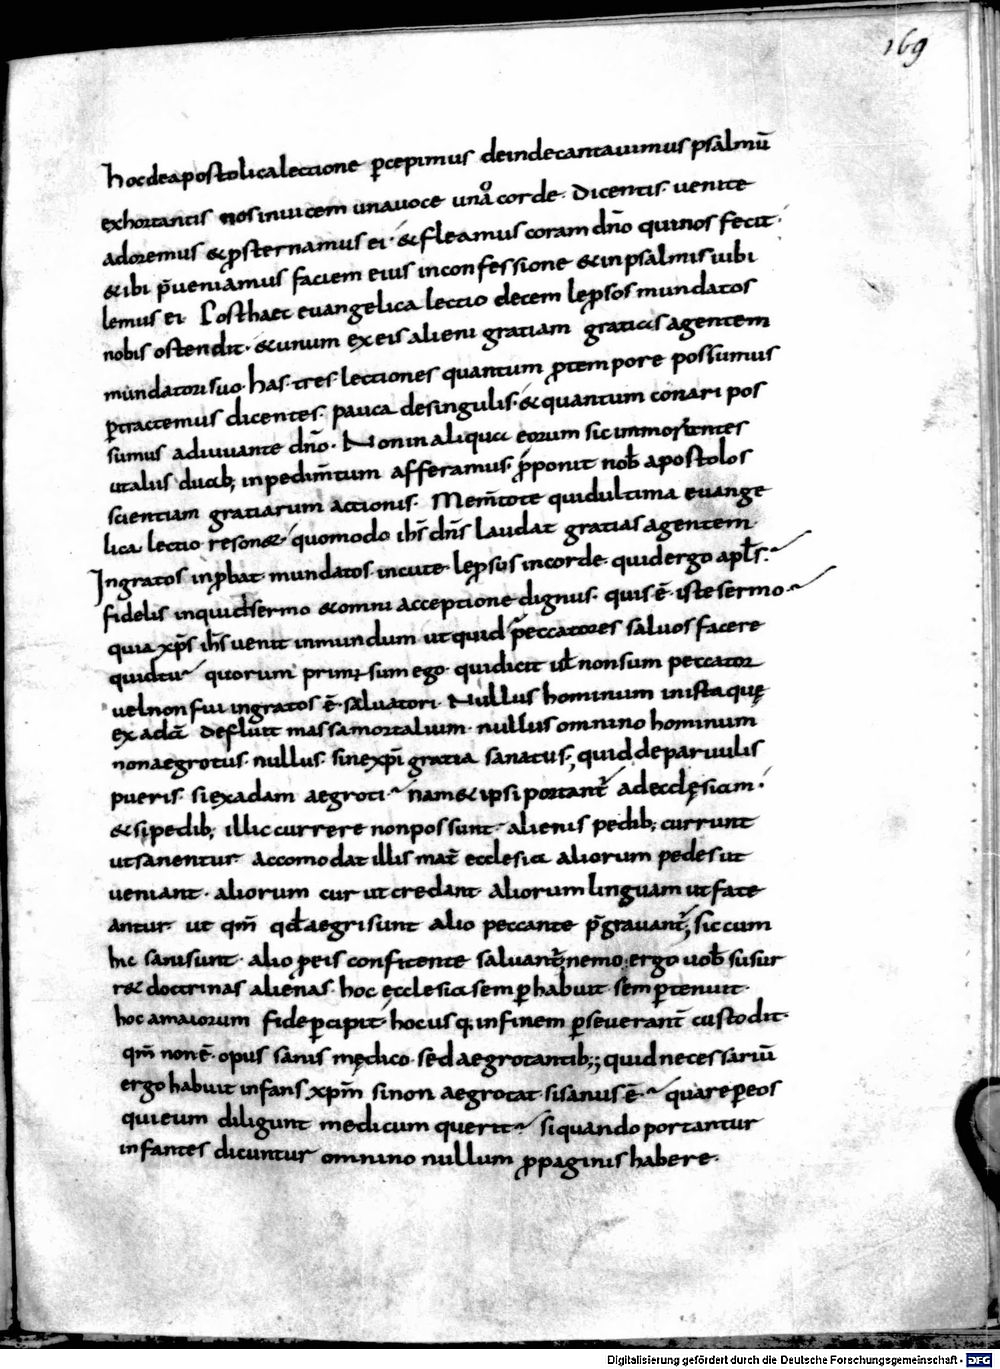 169
hoc de apostolica lectione ꝑcepimus deinde cantauimus psalmū
exhortantis nos inuicem una uoce uno corde · dicentis · uenite
adoremus & ꝓsternamus ei · & fleamus coram dño qui nos fecit ·
& ibi p̄ueniamus faciem eius in confessione & in psalmis iubi
lemus ei Posthaec euangelica lectio decem leprosos mundatos
nobis ostendit · & unum ex eis alieni gratiam gratias agentem
mundatori suo · has tres lectiones quantum ꝓ tempore possumus
ꝑtractemus dicentes · pauca de singulis · & quantum conari pos
sumus adiuuante dño · Non in aliqua eorum sic inmorantes
ut aliis duab; inpedimtum afferamus · ꝓponit nob apostolos
scientiam gratiarum actionis · Mem̄tote quid ultima euange
lica lectio reson& · quomodo ihs dn̄s laudat gratias agentem
Ingratos inprobat · mundatos in cute · leprosus in corde · quid ergo apls ·
fidelis inquid sermo & omni acceptione dignus · quis ē · iste sermo ·
quia xp̄s ihs uenit in mundum ut quid peccatores saluos facere
quid tu · quorum primus sum ego · quidicit ul non sum peccator
uel non fui ingratos ē saluatori · Nullus hominum in ista quę
ex adā defluit massa mortalium · nullus omnino hominum
non aegrotus · nullus · sine xp̄i gratia sanatus ; quid de paruulis
pueris · si ex adam aegroti · nam & ipsi portant̄ ad ecclęsiam ·
& si pedib; illic currere non possunt · alienis pedib; currunt
ut sanentur accomodat illis mat̄ ecclesia aliorum pedes ut
ueniant · aliorum cor ut credant aliorum linguam ut fate
antur ut qm̄ qd aegri sunt alio peccante p̄grauant̄ ; sic cum
hic sani sunt · alio ꝓ eis confitente saluant̄ ; nemo ergo uob susur
r& doctrinas alienas · hoc ęcclesia semꝑ habuit semꝑ tenuit ·
hoc a maiorum fide ꝑcipit · hoc usq; in finem ꝑseuerant̄ custodit ·
qm̄ non ē · opus sanis mędico · sed aegrotantib; ; quid necessariū
ergo habuit infans xpm̄ si non aegrotat · si sanus ē · quare ꝑ eos
qui eum diligunt medicum querit · si quando portantur
infantes dicuntur omnino nullum ꝓpaginis habere ·
Digitalisierung gefördert durch die Deutsche Forschungsgemeinschaft - DFG